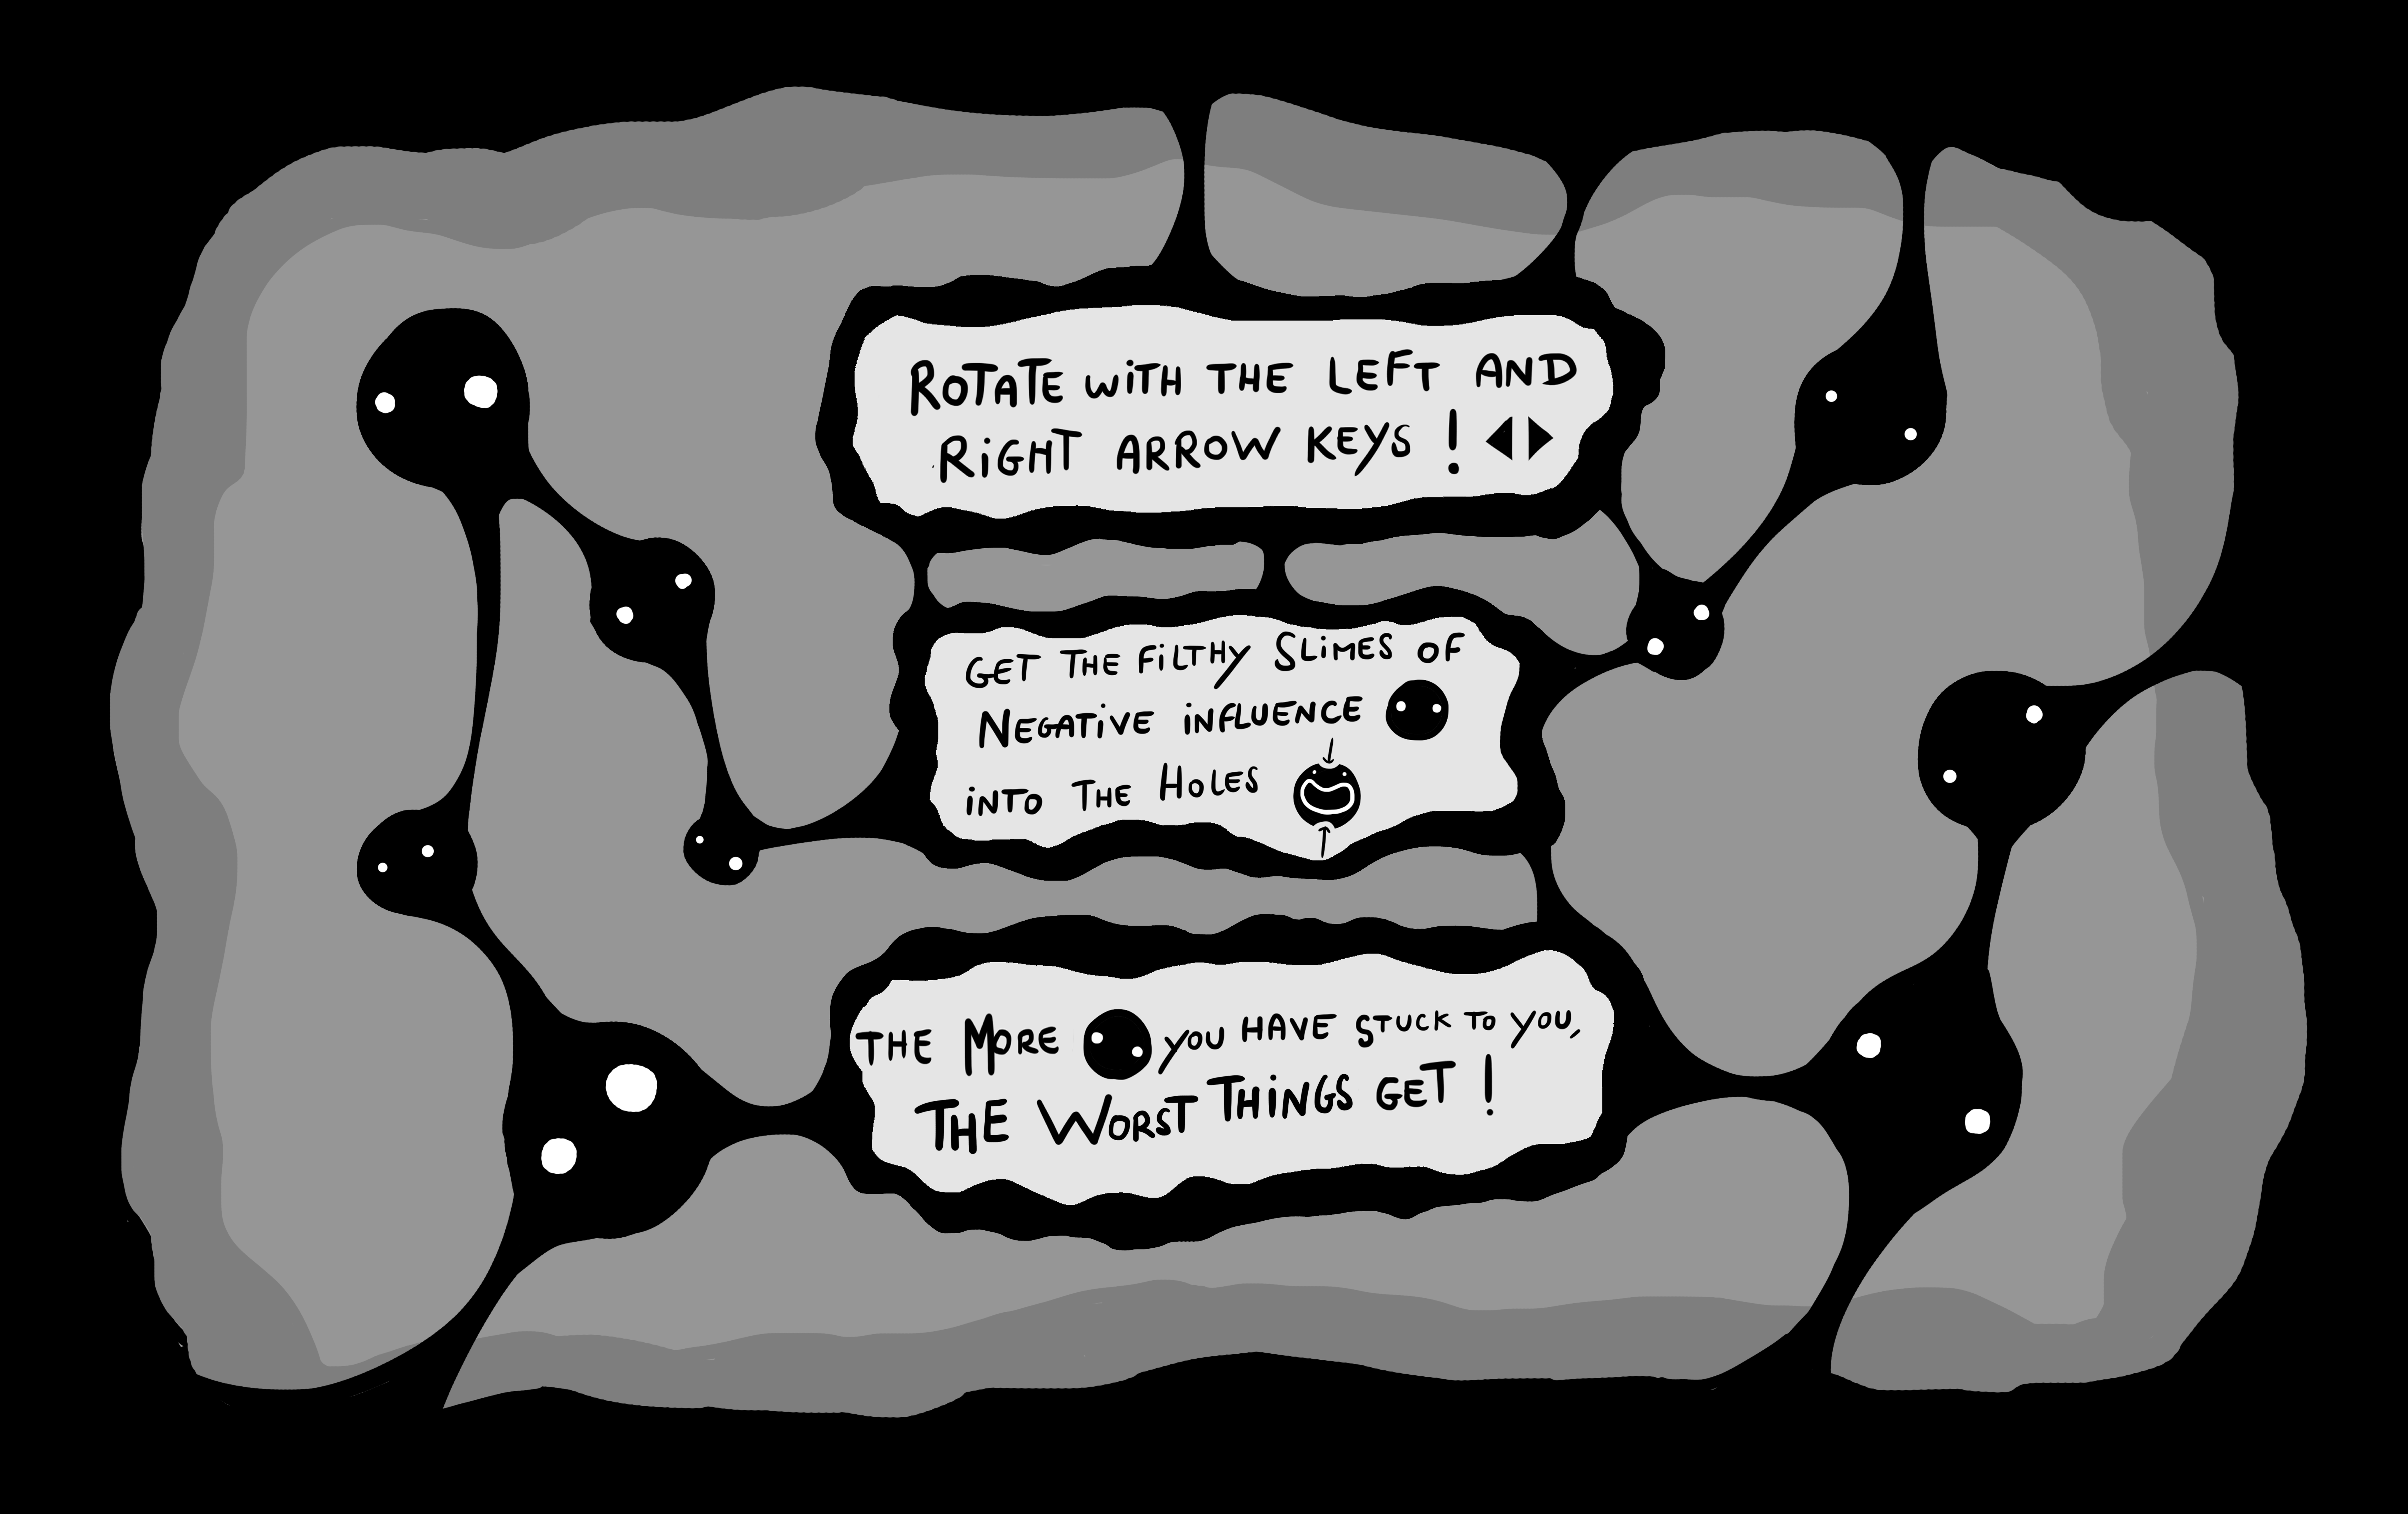 ROTATE WITH THE LEFT AND
RIGHT ARROW KEYS !
GET THE FILTHY SLIMES OF
NEGATIVE INFLUENCE
INTO THE HOLES
THE MORE YOU HAVE STUCK TO YOU,
THE WORST THINGS GET !